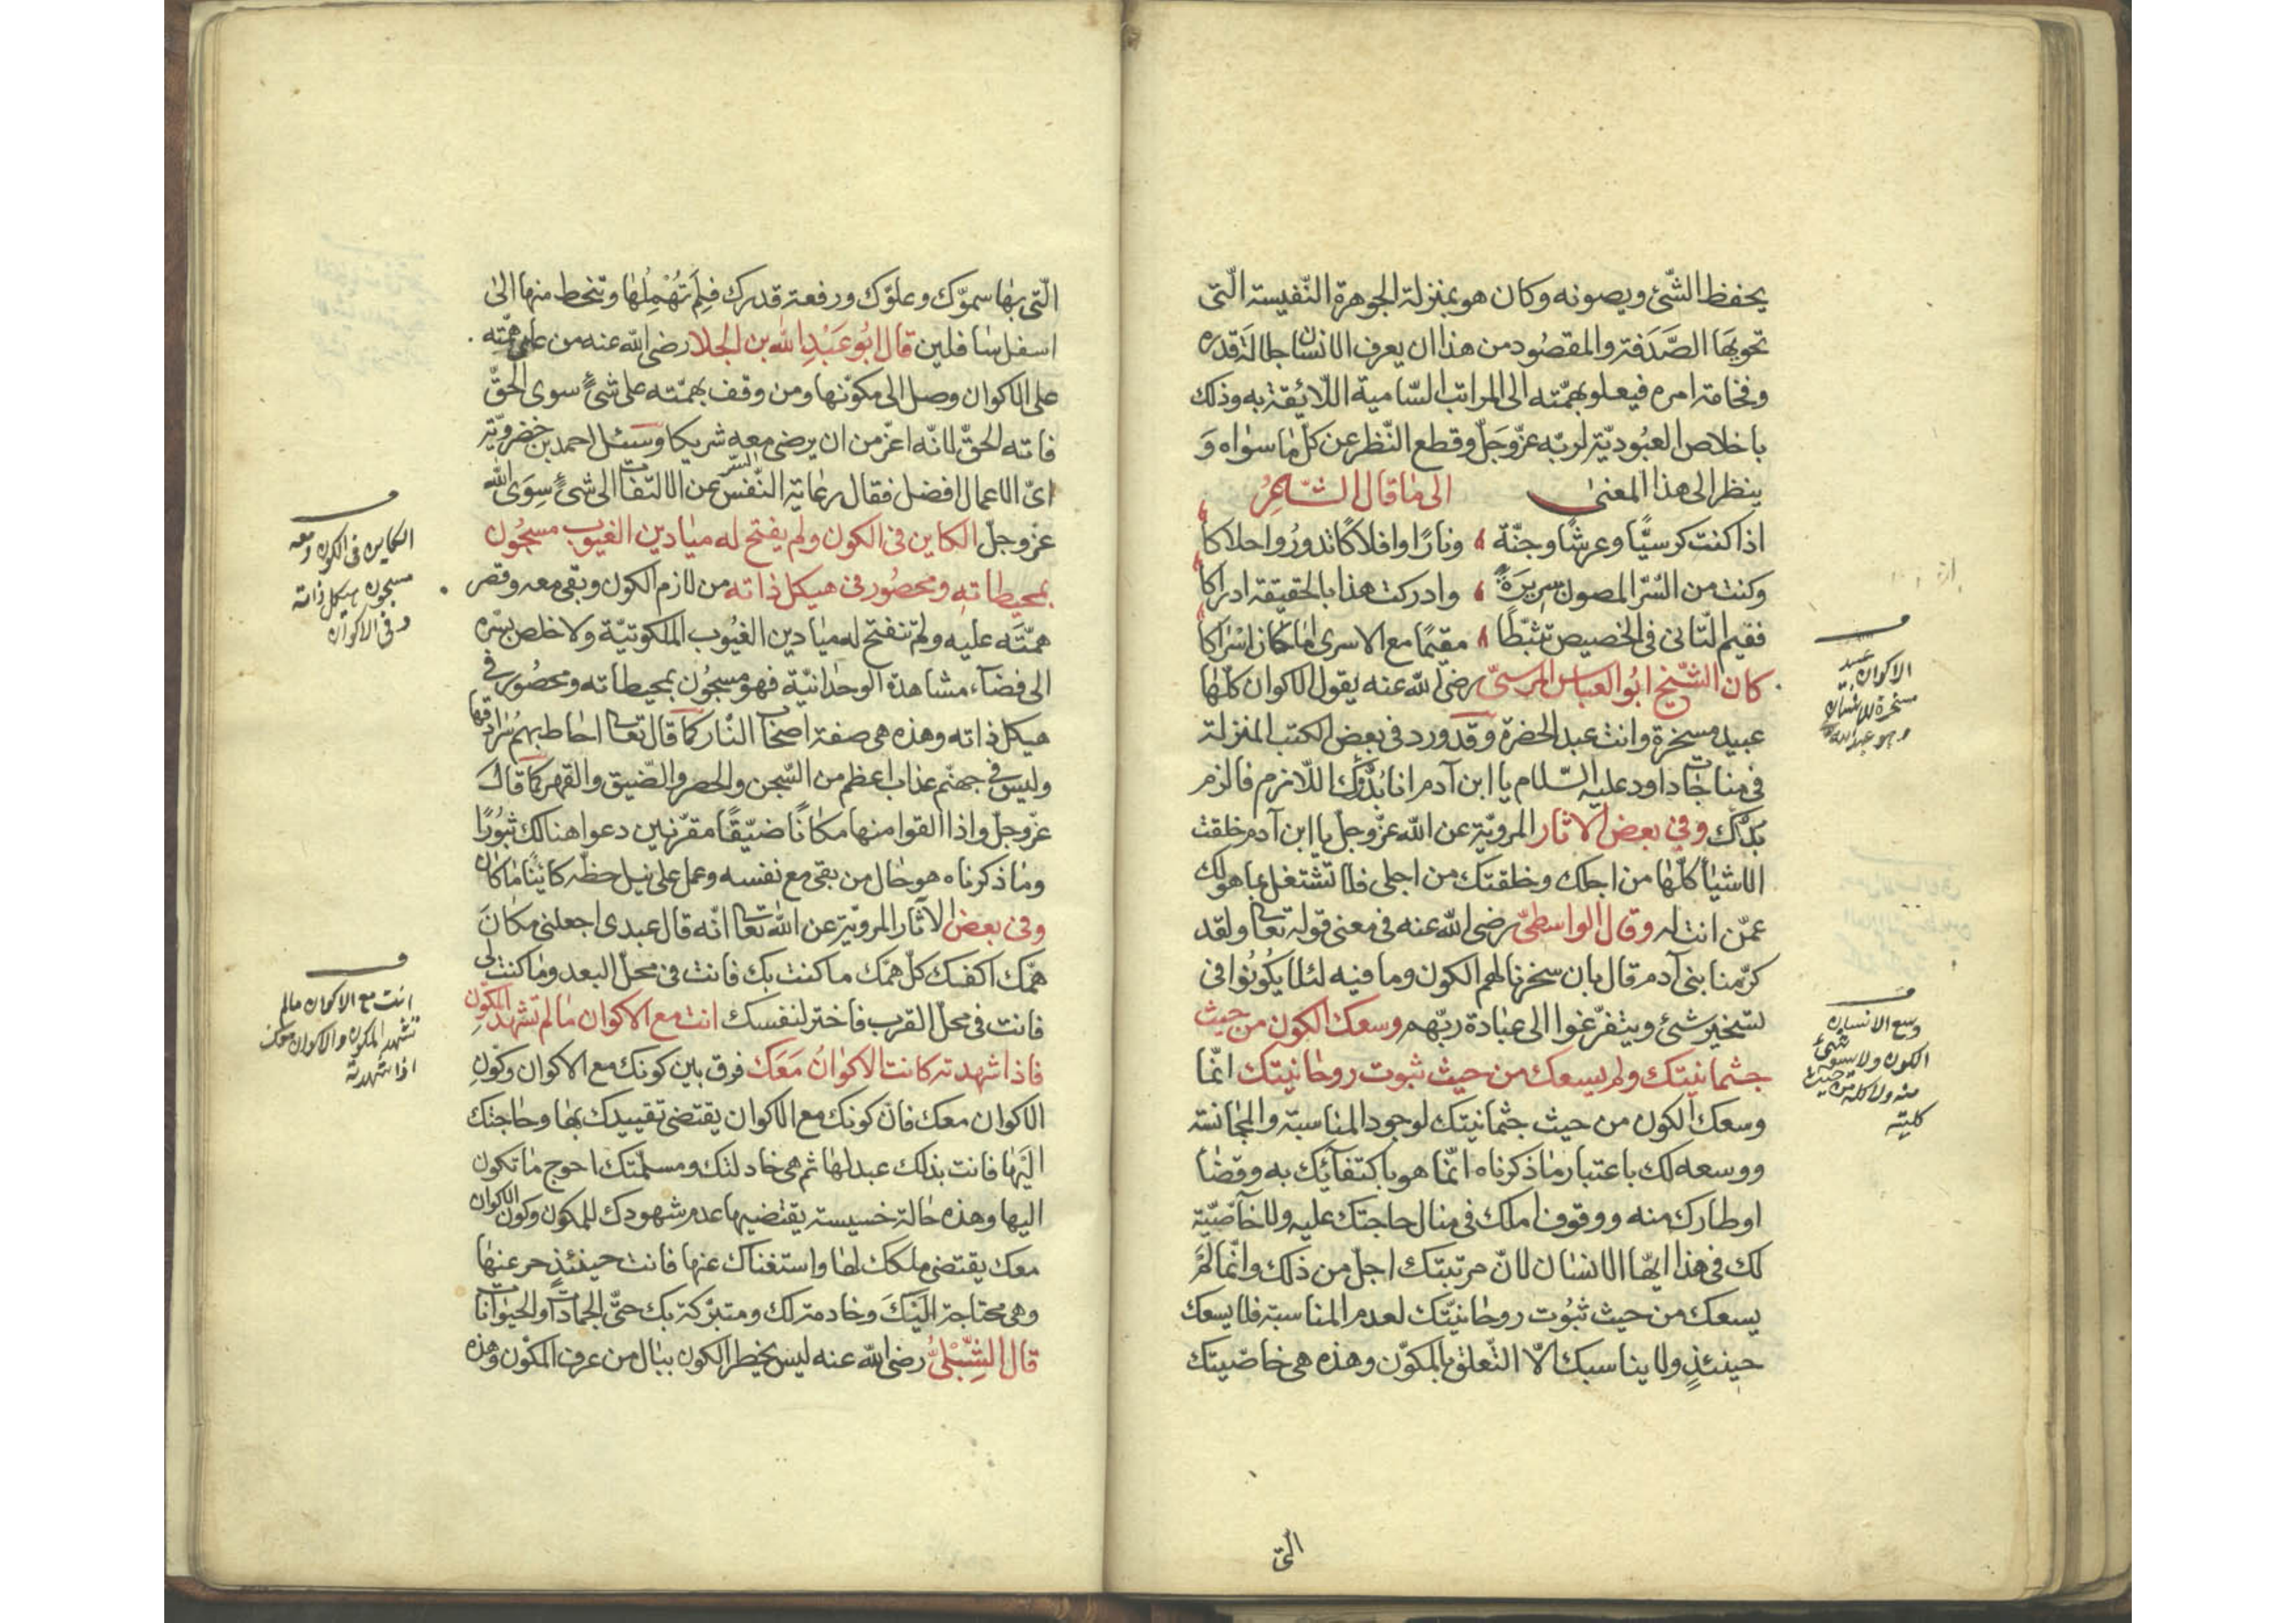 يحفظ الشّئ ويصونه وكان هو بمنزلة الجوهرة النّفيسة الّتى
تحويها الصَّدَفة والمقصُود من هذا ان يعرف الانسان جلالة قدره
وفخامة امره فيعلو بهمّته الى المراتب السّامية اللّائقة به وذلك
باخلاص العبُوديّة لربّه عزّوجَلّ وقطع النّظر عن كلّ ما سواه وَ
ينظر الى هذا المعنى الى ما قال الشّاعِرُ
اذا كنت كرسيًّا وعرشًا وجنّة ونارًا وافلاكًا تدورُ واحلاكا
وكنت من السّرّ المصون سرِيرَةً وادركت هذا بالحقيقة ادراكا
ففيم التّانى فى الحضيض تثبّطًا مقيمًا مع الاسرى اما حان اسْراكا
كان الشّيخ ابُو العباس المرسىّ رضى الله عنه يقول الاكوان كلّها
عبيد مسخرة وانت عبد الحضرة وقد ورد فى بعض الكتب المنزلة
فى مناجات داود عليه السّلام يا ابن آدم انا بُدُّكَ اللّازم فالزم
بدّك وفى بعض الاثار المرويّة عن الله عزّوجلّ يا ابن آدم خلقت
الاشياٰ كلّها من اجلك وخلقتك من اجلى فلا تشتغل بما هو لك
عمّن انت له وقال الواسطىّ رضى الله عنه فى معنى قوله تعالى ولقد
كرّمنا بنى آدم قال بان سخرنا لهم الكون وما فيه لئلا يكُونُوا فى
تسخير شئ ويتفرّغوا الى عبادة ربّهم وسعك الكون من حيث
جثمانيتك ولم يسعك من حيث ثبوت روحانيتك انّما
وسعك الكون من حيث جثمانيتك لوجود المناسبة والمجانسة
ووسعه لك باعتبار ما ذكرناه انّما هو باكتفائك به وقضا
اوطارك منه ووقوف املك فى منال حاجتك عليه ولا خاصّيّة
لك فى هذا ايّها الانسان لانّ مرتبتك اجلّ من ذلك وانّما لمْ
يسعك من حيث ثبُوت روحانيّتك لعدم المناسبة فلا يسعك
حينئذٍ ولا يناسبك الّا التّعلق بالمكوّن وهذه هى خاصّيتك
الّتى
الاكوان عبيد
مسخرة للانسان
وهو عبد الله
وسع الانسان
الكون ولا يسع شئ
منه ولا كله من حيث
كليته
الّتى بها سموّك وعلوّك ورفعة قدرك فلِمَ تُهْمِلُها وتنحط منها الى
اسفل سافلين قال ابُو عَبْدِ الله بن الجلا رضى الله عنه من على همّته
على الاكوان وصل الى مكوّنها ومن وقف بهمّته على شئٍ سوى الحقّ
فاته الحقّ لانّه اعزّ من ان يرضى معه شريكا وسئل احمد بن خضرويّة
اىّ الاعمال افضل فقال رعاية السّر النّفس عن الالتفات الى شئٍ سِوَى الله
عزّوجلّ الكاين فى الكون ولم يفتح له ميادين الغيوب مسجُون
بمحيطاتِه ومحصُور فى هيكل ذاته من لازم الكون وبقى معه وقصر
همّتَه عليه ولم تنفتح له ميادين الغيُوب الملكوتيّة ولا خلص بسرّه
الى فضآء مشاهدة الوحدانيّة فهو مسجُون بمحيطاته ومحصُور فى
هيكل ذاته وهذه هى صفة اصحاب النّار كما قال تعالى احاط بهم سُرادقها
وليس فى جهنّم عذاب اعظم من السّجن والحصر والضّيق والقهر كما قال
عزّوجلّ واذا القوا منها مكانًا ضيّقًا مقرّنين دعوا هنالك ثبُورًا
وما ذكرناه هو حال من بقى مع نفسه وعمل على نيل حظّه كائنًا ما كان
وفى بعض الاثار المرويّة عن الله تعالى انّه قال عبدى اجعلنى مكانَ
همّك اكفيك كلّ همّك ما كنت بك فانت فى محلّ البعد وما كنت لى
فانت فى محلّ القرب فاختر لنفسك انت مع الاكوان ما لم تشهد المكوّن
فاذا شهدته كانت الاكوانُ مَعَك فرق بين كونك مع الاكوان وكَونِ
الاكوان معك فانّ كونك مع الاكوان يقتضى تقييدك بها وحاجتك
اليها فانت بذلك عبد لها ثم هى خاذلتك ومسلّمتك احوج ما تكون
اليها وهذه حالة خسيسة يقتضيها عدم شهودك للمكون وكون الاكوان
معك يقتضى ملكك لها واستغناك عنها فانت حينئذٍ حر عنها
وهى محتاجة اليْكَ وخادمة لك ومتبرّكة بك حتّى الجمادات والحيوانات
قال الشِّبْلىُّ رضى الله عنه ليس يخطر الكون ببال من عرف المكوّن وهذه
الكاين فى الكون ومعه
مسجون بهيكل ذاته
وفى الاكوان
انت مع الاكوان مالم
تشهد المكون والاكوان معك
اذا شهدته